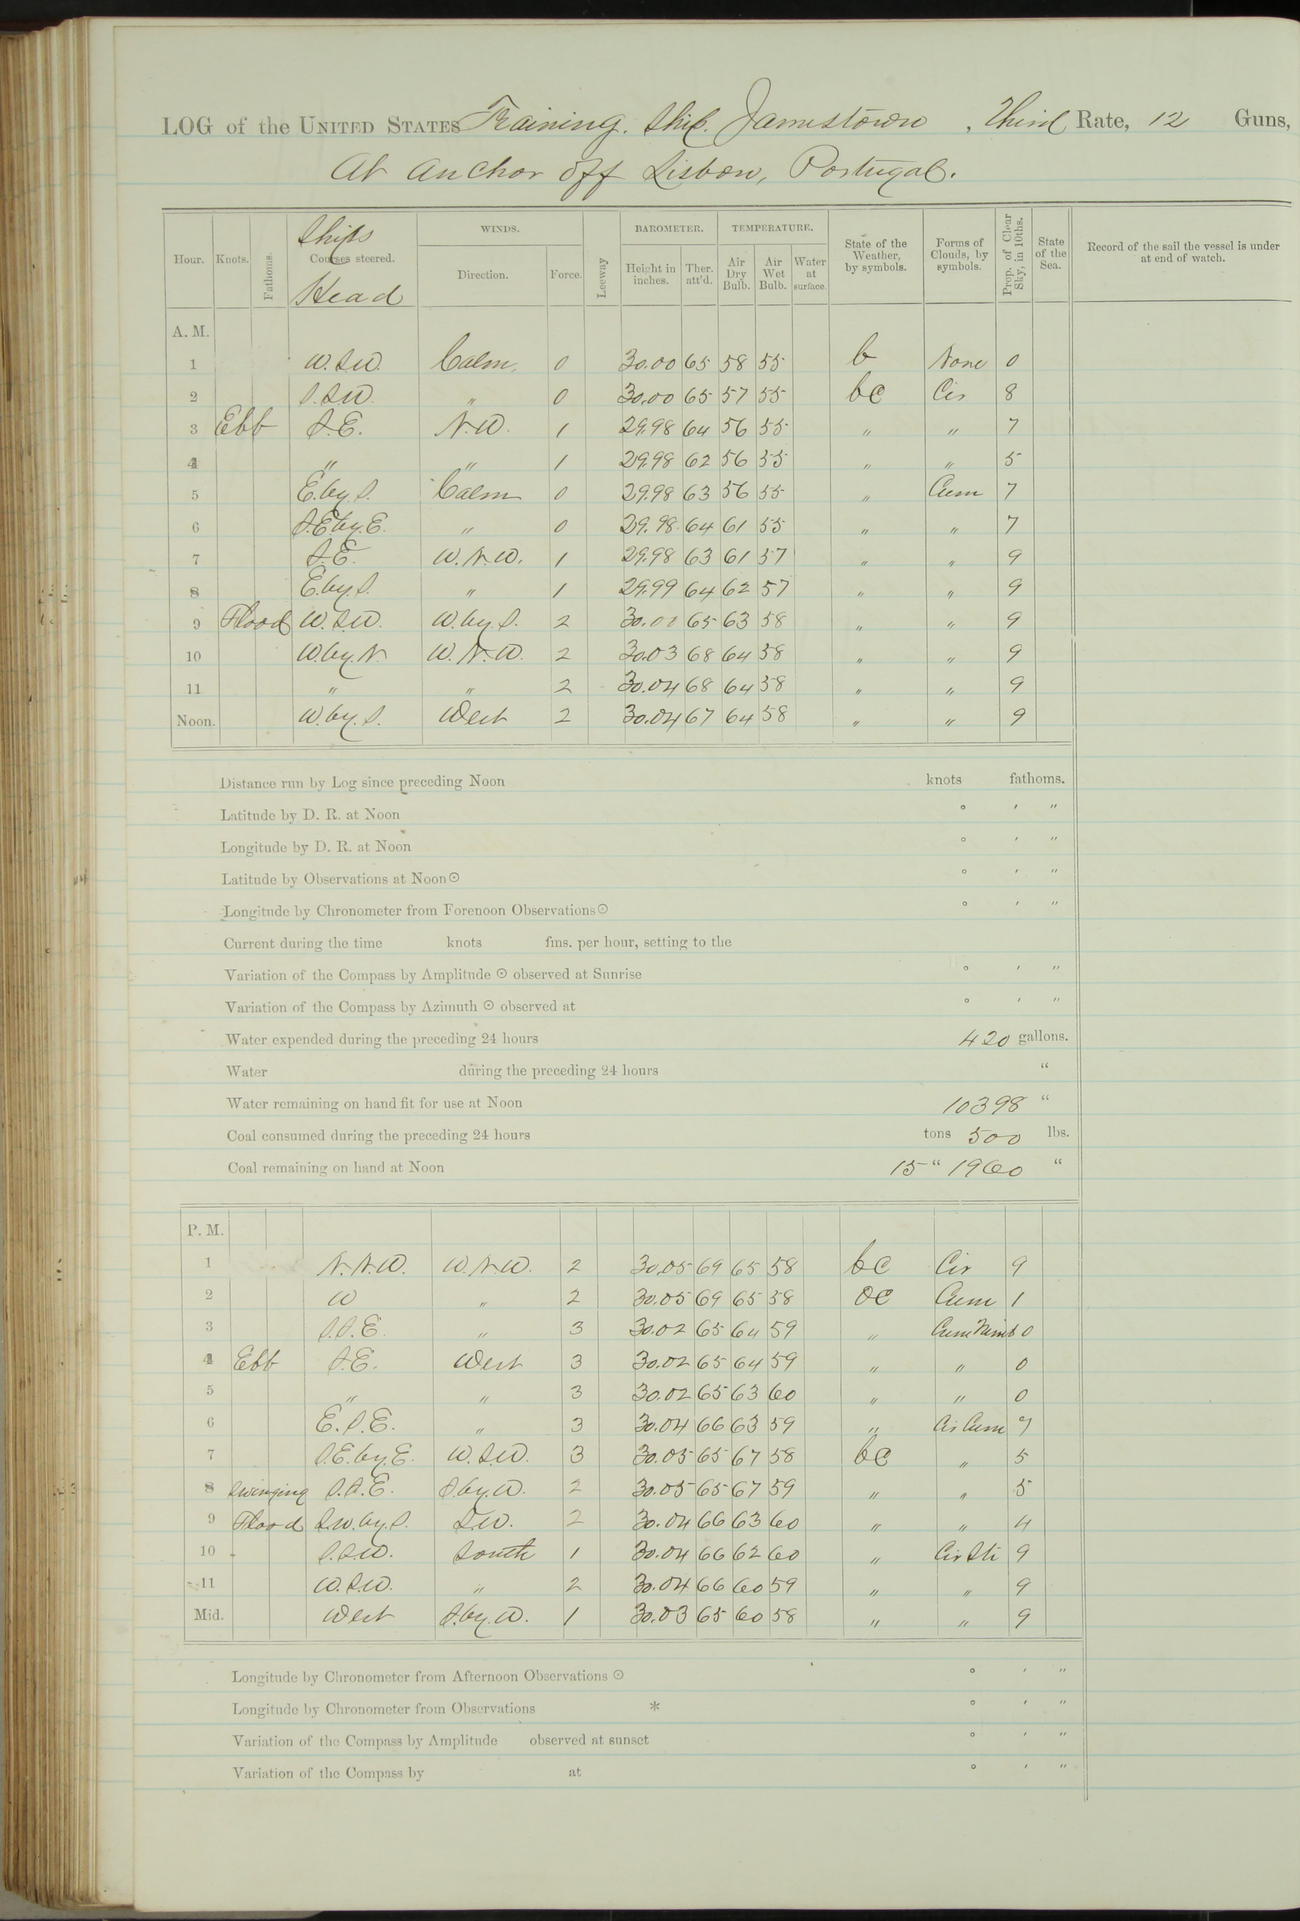 LOG of the UNITED STATES Training Ship Jamestown, Third Rate, 12 Guns,
At Anchor off Lisbon, Portugal.
Hour. Knots. Fathoms. Ship's Courses steered. Head WINDS. Direction. Force. Leeway BAROMETER. Height in inches. Ther. att'd. TEMPERATURE. Air Dry Bulb. Air Wet Bulb. Water at surface. State of the Weather, by symbols. Forms of Clouds, by symbols. Prop. of Clear Sky, in 10ths. State of the Sea. Record of the sail the vessel is under at end of watch.
A. M.
1 W.S.W. Calm, 0 30.00 65 58 55 b None 0
2 S.S.W. " 0 30.00 65 57 55 bc Cir 8
3 Ebb S.E. N.W. 1 29.98 64 56 55 " " 7
4 " " 1 29.98 62 56 55 " " 5
5 E. by S. Calm 0 29.98 63 56 55 " Cum 7
6 S.E by. E. " 0 29.98 64 61 55 " " 7
7 S.E. W.N.W. 1 29.98 63 61 57 " " 9
8 E. by. S. " 1 29.99 64 62 57 " " 9
9 Flood W.S.W. W. by. S. 2 30.01 65 63 58 " " 9
10 W. by. N. W.N.W. 2 30.03 68 64 58 " " 9
11 " " 2 30.04 68 64 58 " " 9
Noon. W. by. S. West 2 30.04 67 64 58 " " 9
Distance run by Log since preceding Noon knots fathoms.
Latitude by D. R. at Noon ° ' "
Longitude by D. R. at Noon ° ' "
Latitude by Observations at Noon ☉ ° ' "
Longitude by Chronometer from Forenoon Observations ☉ ° ' "
Current during the time knots fms. per hour, setting to the
Variation of the Compass by Amplitude ☉ observed at Sunrise ° ' "
Variation of the Compass by Azimuth ☉ observed at ° ' "
Water expended during the preceding 24 hours 420 gallons.
Water during the preceding 24 hours "
Water remaining on hand fit for use at Noon 10398 "
Coal consumed during the preceding 24 hours tons 500 lbs.
Coal remaining on hand at Noon 15 " 1960 "
P. M.
1 N.N.W. W.N.W. 2 30.05 69 65 58 bc Cir 9
2 W " 2 30.05 69 65 58 oc Cum 1
3 S.S.E. " 3 30.02 65 64 59 " Cum Nimb 0
4 Ebb S.E. West 3 30.02 65 64 59 " " 0
5 " " 3 30.02 65 63 60 " " 0
6 E.S.E. " 3 30.04 66 63 59 " Cir Cum 7
7 S.E. by. E. W.S.W. 3 30.05 65 67 58 bc " 5
8 Swinging S.S.E. S. by. W. 2 30.05 65 67 59 " " 5
9 Flood S.W. by. S. S.W. 2 30.04 66 63 60 " " 4
10 S.S.W. South 1 30.04 66 62 60 " Cir Str 9
11 W.S.W. " 2 30.04 66 60 59 " " 9
Mid. West S. by. W. 1 30.03 65 60 58 " " 9
Longitude by Chronometer from Afternoon Observations ☉ ° ' "
Longitude by Chronometer from Observations * ° ' "
Variation of the Compass by Amplitude observed at sunset ° ' "
Variation of the Compass by at ° ' "